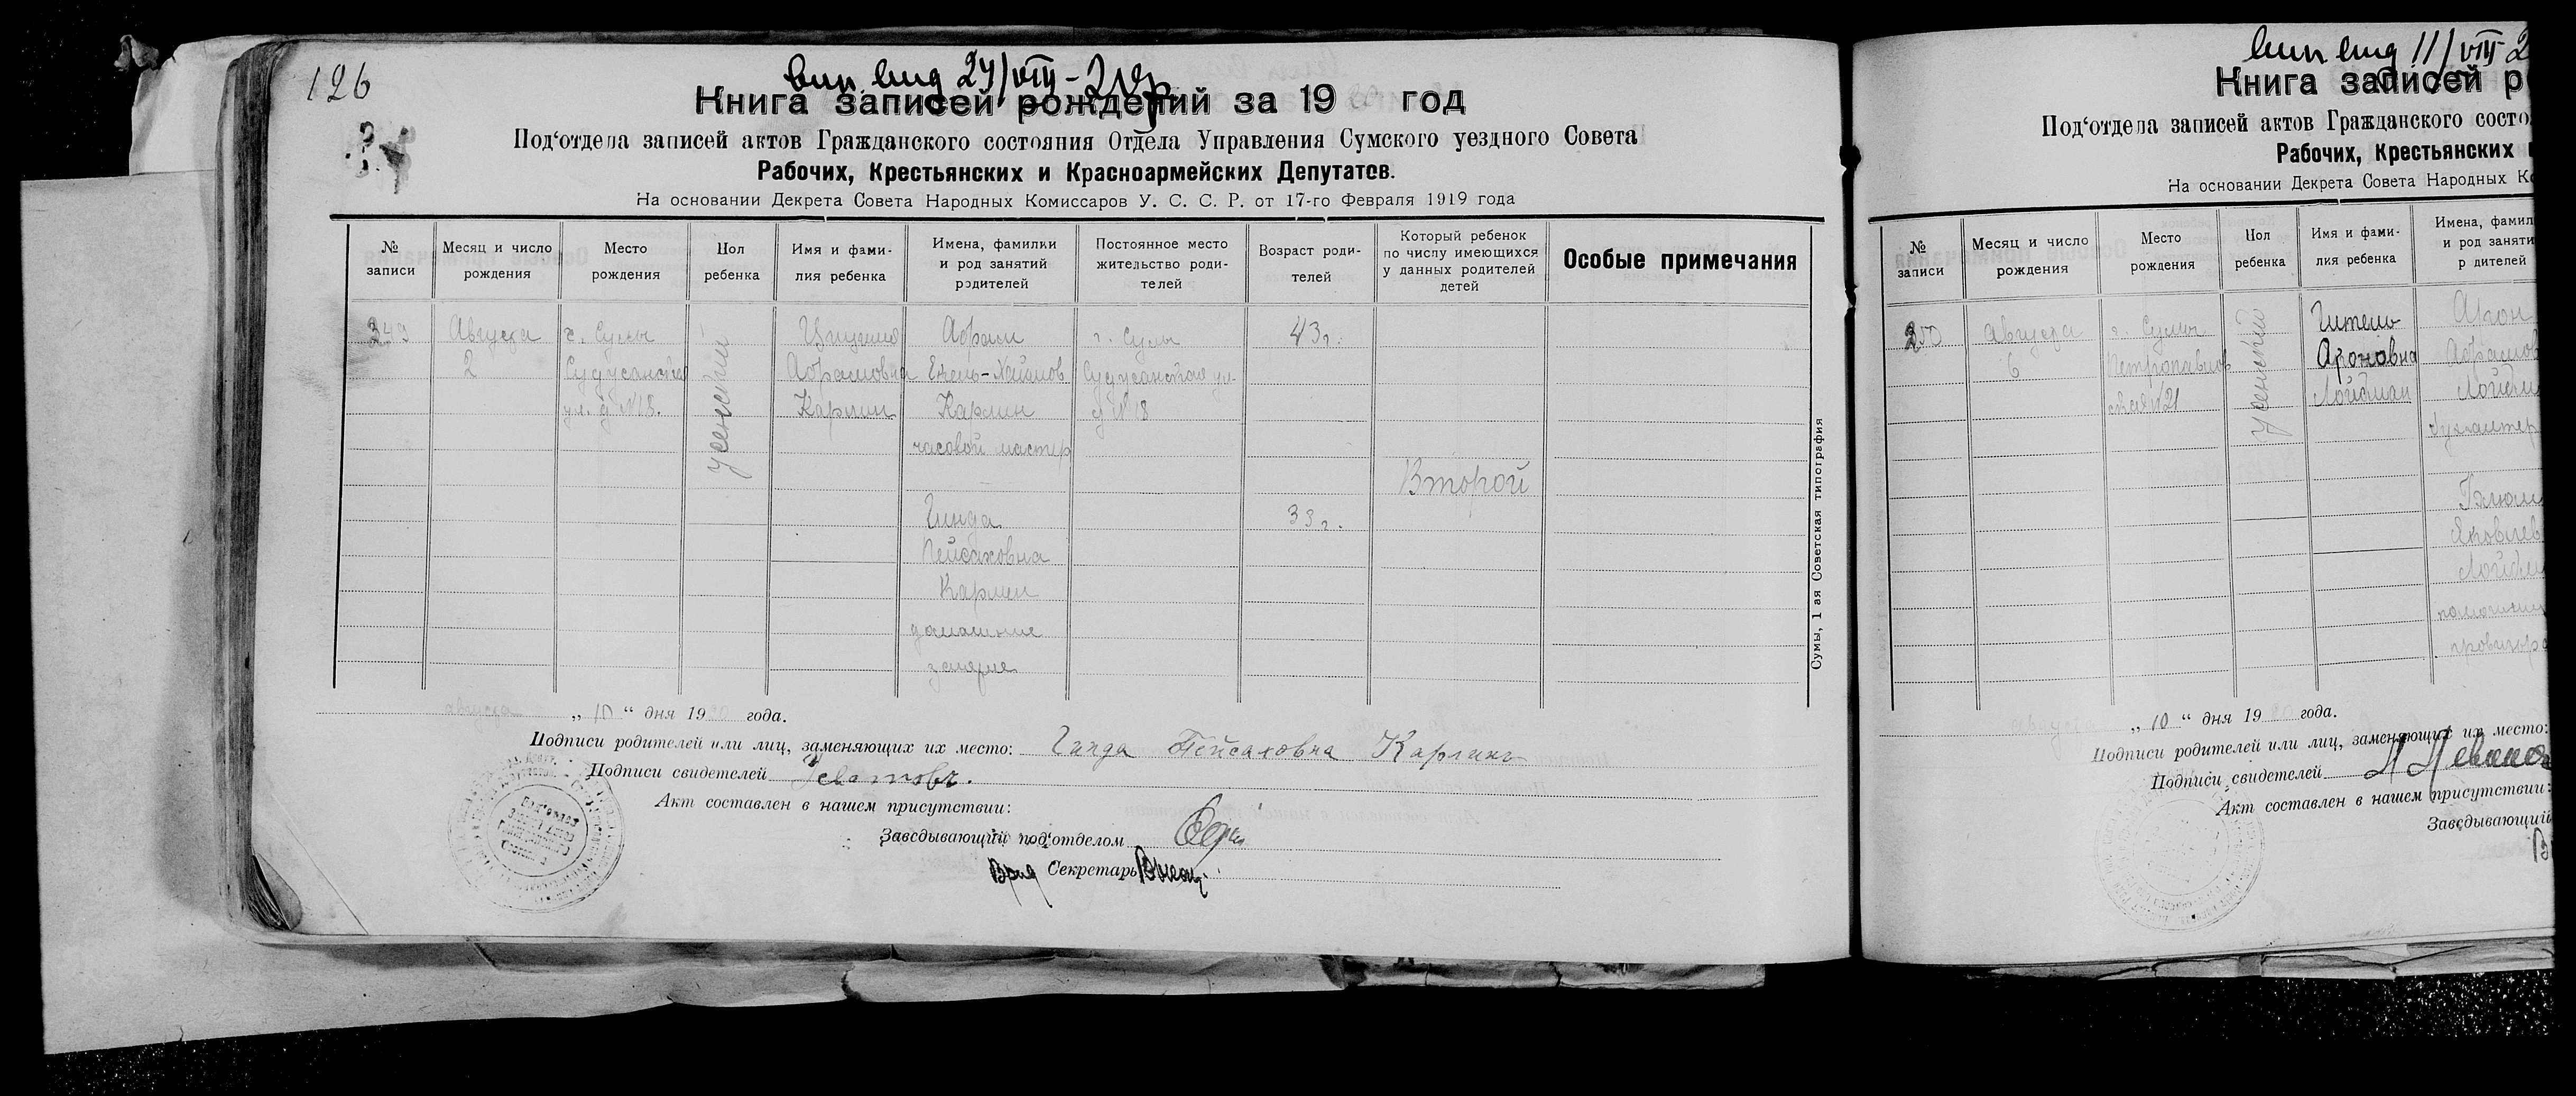 126
вып. выд 24/VIII-20г
Книга записей рождений за 1920 год
Под‘отдела записей актов Гражданского состояния Отдела Управления Сумского уездного Совета
Рабочих, Крестьянских и Красноармейских Депутатов.
На основании Декрета Совета Народных Комиссаров У. С. С. Р. от 17-го Февраля 1919 года
№ записи
Месяц и число рождения
Место рождения
Пол ребенка
Имя и фами-
лия ребенка
Имена, фамилии
и род занятий
родителей
Постоянное место
жительство роди-
телей
Возраст роди-
телей
Который ребенок
по числу имеющихся
у данных родителей
детей
Особые примечания
349
Августа
2
г. Сумы
ул. д №18.
женский
Абрамовна
Карлин
Абрам
Хаимов
Карлин
часовой мастер
Гинда
Пейсаховна
Карлин
домашние
занятие
г. Сумы
д №18
43 г.
33 г.
Второй
Сумы, 1 ая Советская типография
августа „10“ дня 1920 года.
Подписи родителей или лиц, заменяющих их место: Гинда Пейсаховна Карлинъ
Подписи свидетелей
Акт составлен в нашем присутствии:
Заведывающий под‘отделом
Врид Секретарь
вып выд 11/VIII-2
Книга записей р
Под‘отдела записей актов Гражданского состо
Рабочих, Крестьянских
На основании Декрета Совета Народных К
№ записи
Месяц и число рождения
Место рождения
Пол ребенка
Имя и фами-
лия ребенка
Имена, фамил
и род заняти
р дителей
350
августа
6
г. Сумы
Петропавлов
ская №21
женский
Гитель
Ароновна
Лойдман
Арон
Абрамов
Лойдм
бухгалтер
Яковлев
Лойдм
помощни
провизора
августа „10“ дня 1920 года.
Подписи родителей или лиц, заменяющих их место:
Подписи свидетелей
Акт составлен в нашем присутствии:
Заведывающий